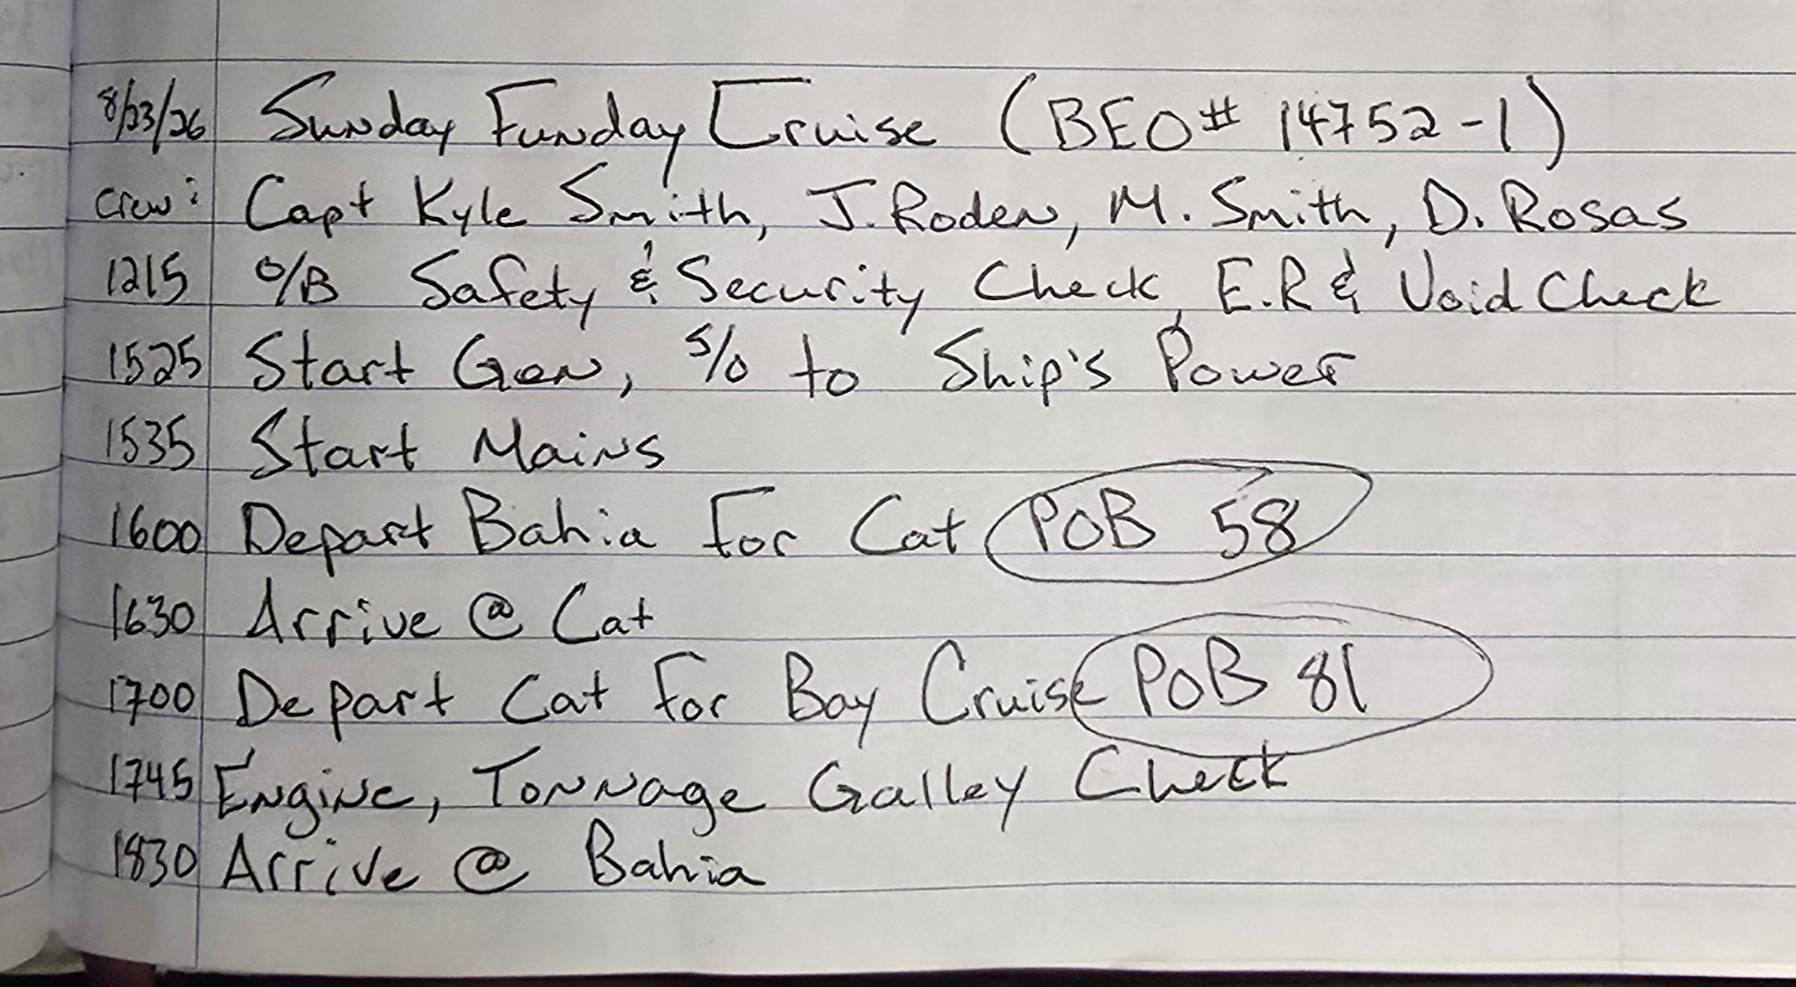 8/23/26 Sunday Funday Cruise (BEO# 14752-1)
crew: Capt Kyle Smith, J. Roden, M. Smith, D. Rosas
1215 O/B Safety & Security Check, E.R & Void Check
1525 Start Gen, S/O to Ship's Power
1535 Start Mains
1600 Depart Bahia For Cat POB 58
1630 Arrive @ Cat
1700 Depart Cat For Bay Cruise POB 81
1745 Engine, Tonnage Galley Check
1830 Arrive @ Bahia